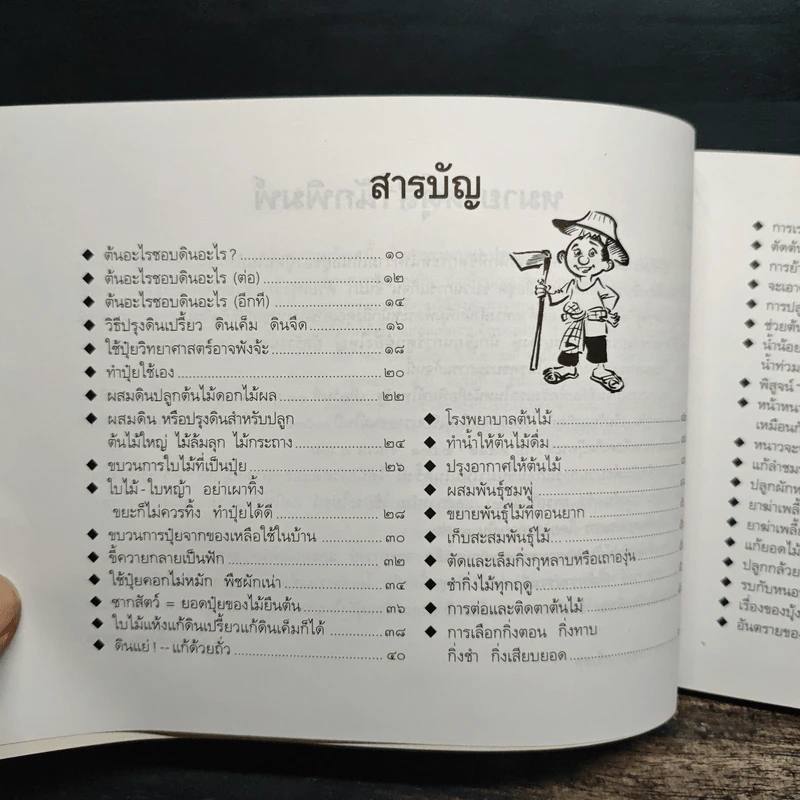 สารบัญ
◆ ต้นอะไรชอบดินอะไร? ๑๐
◆ ต้นอะไรชอบดินอะไร (ต่อ) ๑๒
◆ ต้นอะไรชอบดินอะไร (อีกที) ๑๔
◆ วิธีปรุงดินเปรี้ยว ดินเค็ม ดินจืด ๑๖
◆ ใช้ปุ๋ยวิทยาศาสตร์อาจพังจ้ะ ๑๘
◆ ทำปุ๋ยใช้เอง ๒๐
◆ ผสมดินปลูกต้นไม้ดอกไม้ผล ๒๒
◆ ผสมดิน หรือปรุงดินสำหรับปลูก
ต้นไม้ใหญ่ ไม้ล้มลุก ไม้กระถาง ๒๔
◆ ขบวนการใบไม้ที่เป็นปุ๋ย ๒๖
◆ ใบไม้-ใบหญ้า อย่าเผาทิ้ง
ขยะก็ไม่ควรทิ้ง ทำปุ๋ยได้ดี ๒๘
◆ ขบวนการปุ๋ยจากของเหลือใช้ในบ้าน ๓๐
◆ ขี้ควายกลายเป็นฟัก ๓๒
◆ ใช้ปุ๋ยคอกไม่หมัก พืชผักเน่า ๓๔
◆ ซากสัตว์ = ยอดปุ๋ยของไม้ยืนต้น ๓๖
◆ ใบไม้แห้งแก้ดินเปรี้ยวแก้ดินเค็มก็ได้ ๓๘
◆ ดินแย่!--แก้ด้วยถั่ว ๔๐
◆ โรงพยาบาลต้นไม้
◆ ทำน้ำให้ต้นไม้ดื่ม
◆ ปรุงอากาศให้ต้นไม้
◆ ผสมพันธุ์ชมพู่
◆ ขยายพันธุ์ไม้ที่ตอนยาก
◆ เก็บสะสมพันธุ์ไม้
◆ ตัดและเล็มกิ่งกุหลาบหรือเถาองุ่น
◆ ชำกิ่งไม้ทุกฤดู
◆ การต่อและติดตาต้นไม้
◆ การเลือกกิ่งตอน กิ่งทาบ
กิ่งชำ กิ่งเสียบยอด
◆ การเร
◆ ตัดต้น
◆ การย้า
◆ จะเอา
◆ การปลู
◆ ช่วยต้น
◆ น้ำน้อย
น้ำท่วม
◆ พิสูจน์
◆ หน้าหนา
เหมือนกั
◆ หนาวจะ
◆ แก้ลำชม
◆ ปลูกผักห
◆ ยาฆ่าเพลี้
◆ ยาฆ่าเพลี้
◆ แก้ยอดไม้
◆ ปลูกกล้วย
◆ รบกับหนอ
◆ เรื่องของบุ้ง
◆ อันตรายขอ